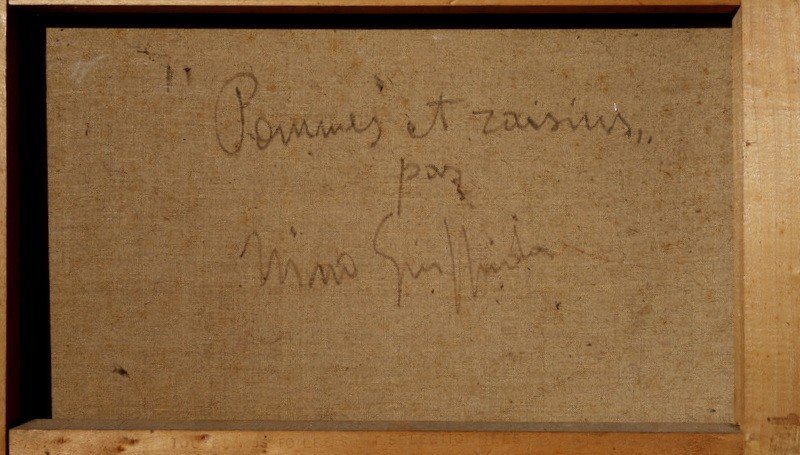 " Pommes et raisins "
par
Nino Giuffrida